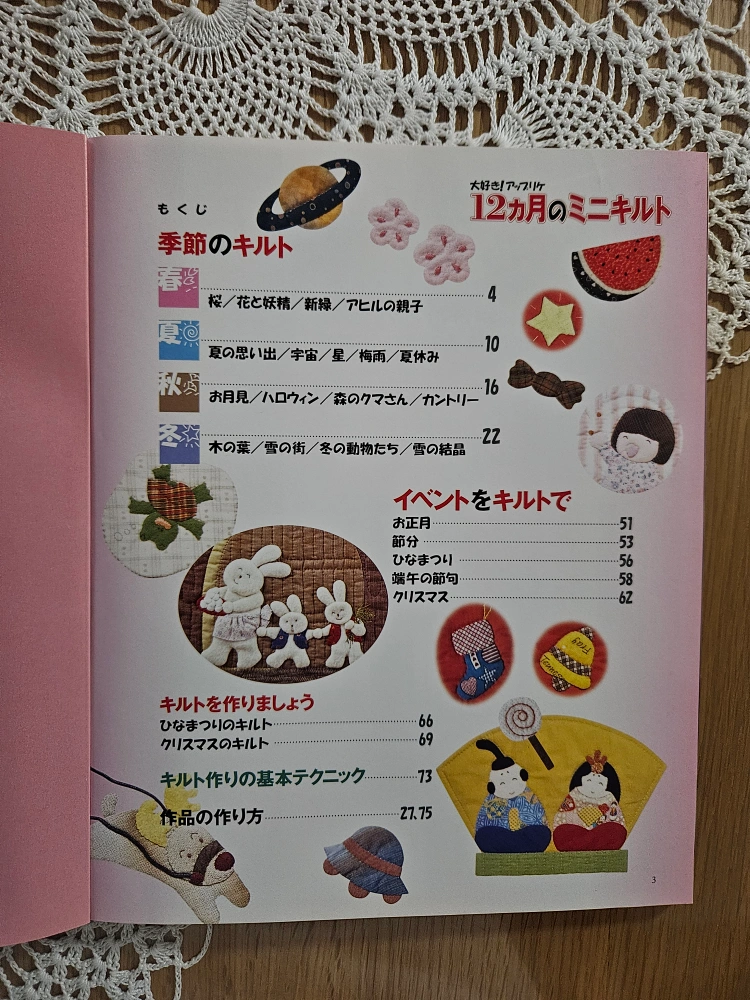 もくじ
大好き!アップリケ
12ヵ月のミニキルト
季節のキルト
春 4
桜／花と妖精／新緑／アヒルの親子
夏 10
夏の思い出／宇宙／星／梅雨／夏休み
秋 16
お月見／ハロウィン／森のクマさん／カントリー
冬 22
木の葉／雪の街／冬の動物たち／雪の結晶
イベントをキルトで
お正月 51
節分 53
ひなまつり 56
端午の節句 58
クリスマス 62
キルトを作りましょう
ひなまつりのキルト 66
クリスマスのキルト 69
キルト作りの基本テクニック 73
作品の作り方 27、75
3